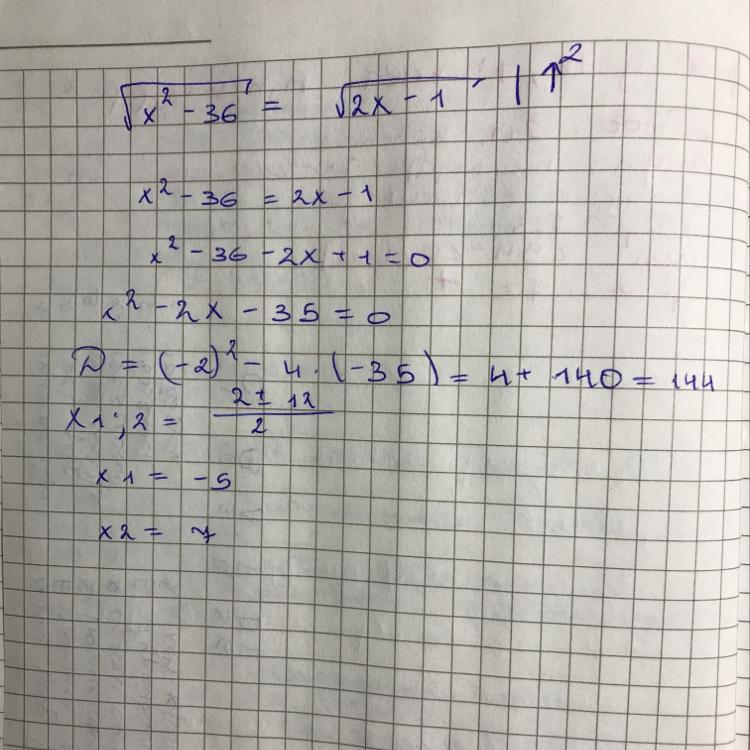 √x² - 36 = √2x - 1 | ↑²
x² - 36 = 2x - 1
x² - 36 - 2x + 1 = 0
x² - 2x - 35 = 0
D = (-2)² - 4 · (-35) = 4 + 140 = 144
x1;2 = (2 ± 12)/2
x1 = -5
x2 = 7